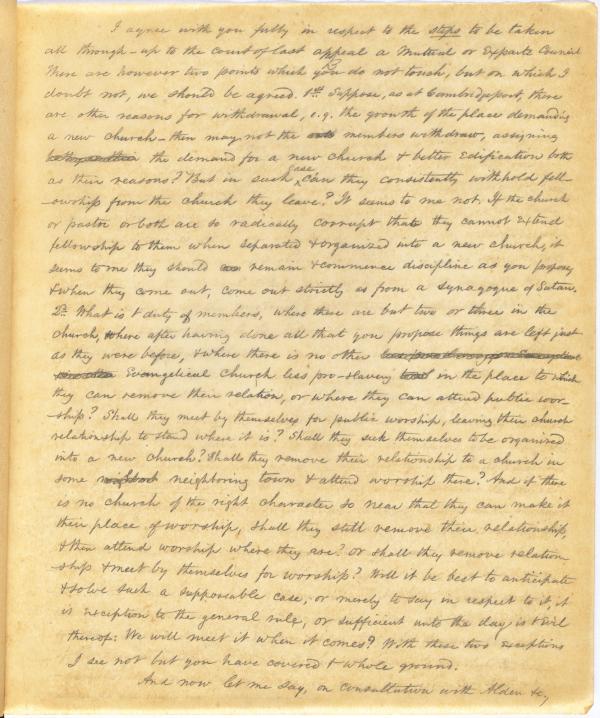 I agree with you fully in respect to the steps to be taken
all through – up to the court of last appeal a Mutual or Exparte Council
There are however two points which you do not touch, but on which I
doubt not, we should be agreed. 1st Suppose, as at Cambridgeport, there
are other reasons for withdrawal, e.g. the growth of the place demanding
a new church – then may not the members withdraw, assigning
the demand for a new church & better edification both
as their reasons? But in such case can they consistently withhold fell-
-owship from the church they leave? It seems to me not. If the church
or pastor or both are so radically corrupt that they cannot extend
fellowship to them when separated & organized into a new church, it
seems to me they should remain & commence discipline as you propose,
& when they come out, come out strictly as from a synagogue of Satan.
2d. What is t duty of members, where there are but two or three in the
church, where after having done all that you propose things are left just
as they were before, & where there is no other
Evangelical Church less pro-slavery in the place to which
they can remove their relation, or where they can attend public wor-
-ship? Shall they meet by themselves for public worship, leaving their church
relationship to stand where it is? Shall they seek themselves to be organized
into a new church? Shall they remove their relationship to a church in
some neighboring town & attend worship there? And if there
is no church of the right character so near that they can make it
their place of worship, shall they still remove their relationship,
& then attend worship where they are? or shall they remove relation
-ship & meet by themselves for worship? Will it be best to anticipate
& solve such a supposable case, or merely to say in respect to it, it
is exception to the general rule, or sufficient unto the day is t evil
thereof: We will meet it when it comes? With these two exceptions
I see not but you have covered t whole ground.
And now let me say, on consultation with Alden &c,